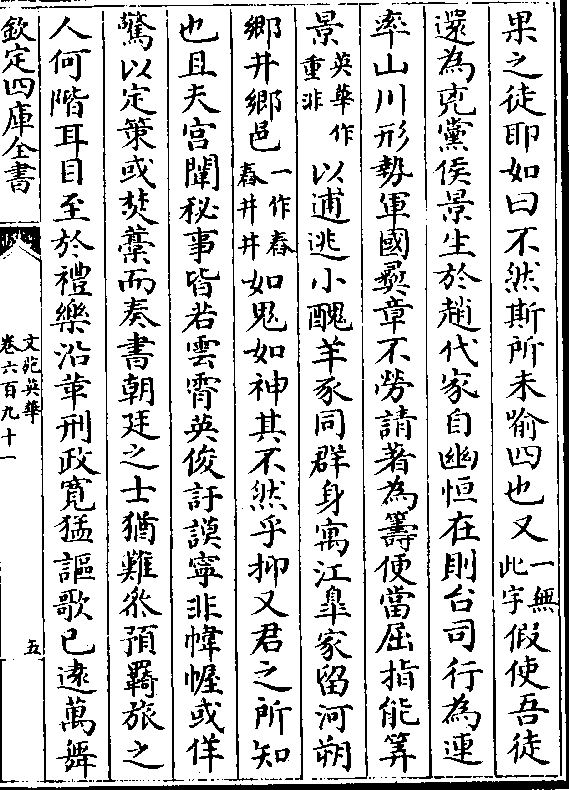 果之徒耶如曰不然斯所未喻四也又一無此字假使吾徒
還為兇黨侯景生於趙代家自幽恒在則台司行為連
率山川形勢軍國彛章不勞請著為籌便當屈指能筭
景英華作重非以逋逃小醜羊豕同群身寓江臯家留河朔
鄉井鄉邑一作舂舂井井如鬼如神其不然乎抑又君之所知
也且夫宫闈秘事皆若雲霄英俊訏謨寧非幃幄或佯
驚以定策或焚藳而奏書朝廷之士猶難參預羇旅之
人何階耳目至於禮樂沿革刑政寛猛謳歌已逺萬舞
欽定四庫全書
文苑英華
卷六百九十一
五